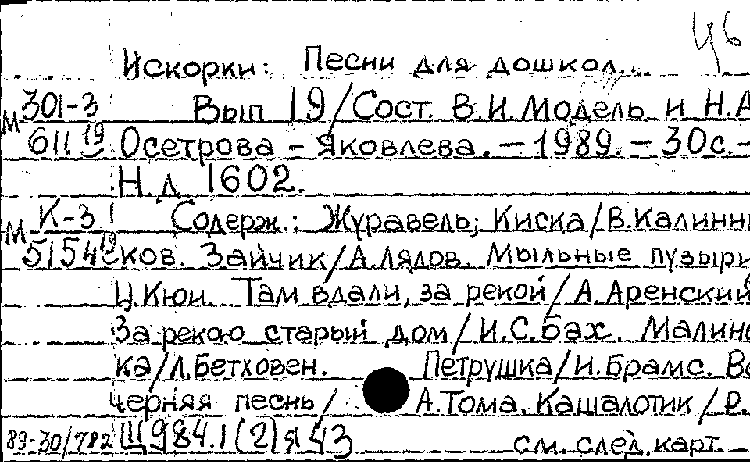 46
Искорки: Песни для дошкол...
М 301-3 Вып 19/Сост. В.И.Модель и Н.А
611 19 Осетрова - Яковлева. - 1989. - 30с.-
Н.д. 1602.
М К-3 Содерж.: Журавель; Киска/В.Калинни
5154 19 ков. Зайчик/А.Лядов. Мыльные пузыри
Ц.Кюи. Там вдали, за рекой/А.Аренский
За рекою старый дом/И.С.Бах. Малинов
ка/Л.Бетховен. Петрушка/И.Брамс. Ве
черняя песнь/ А.Тома. Кашалотик/Р.
89-30/782 Щ984.1(2)я43 см. след. карт.